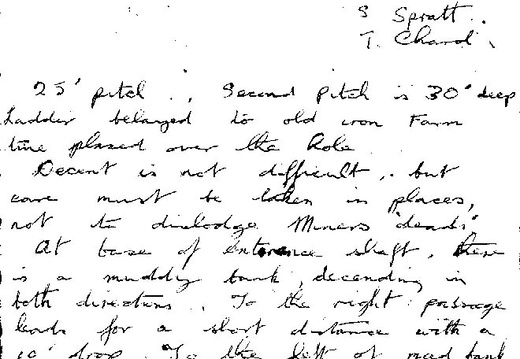 S Spratt.
T. Chard.
25' pitch. Second Pitch is 30' deep
Ladder belayed to old iron Farm
tine plased over the hole
Decent is not difficult, but
care must be taken in places,
not to dialodge Miners 'deads'
At base of enterence shaft, there
is a muddy bank, decending in
both directions. To the right passage
leads for a short distance with a
10' drop. To the left of mud bank